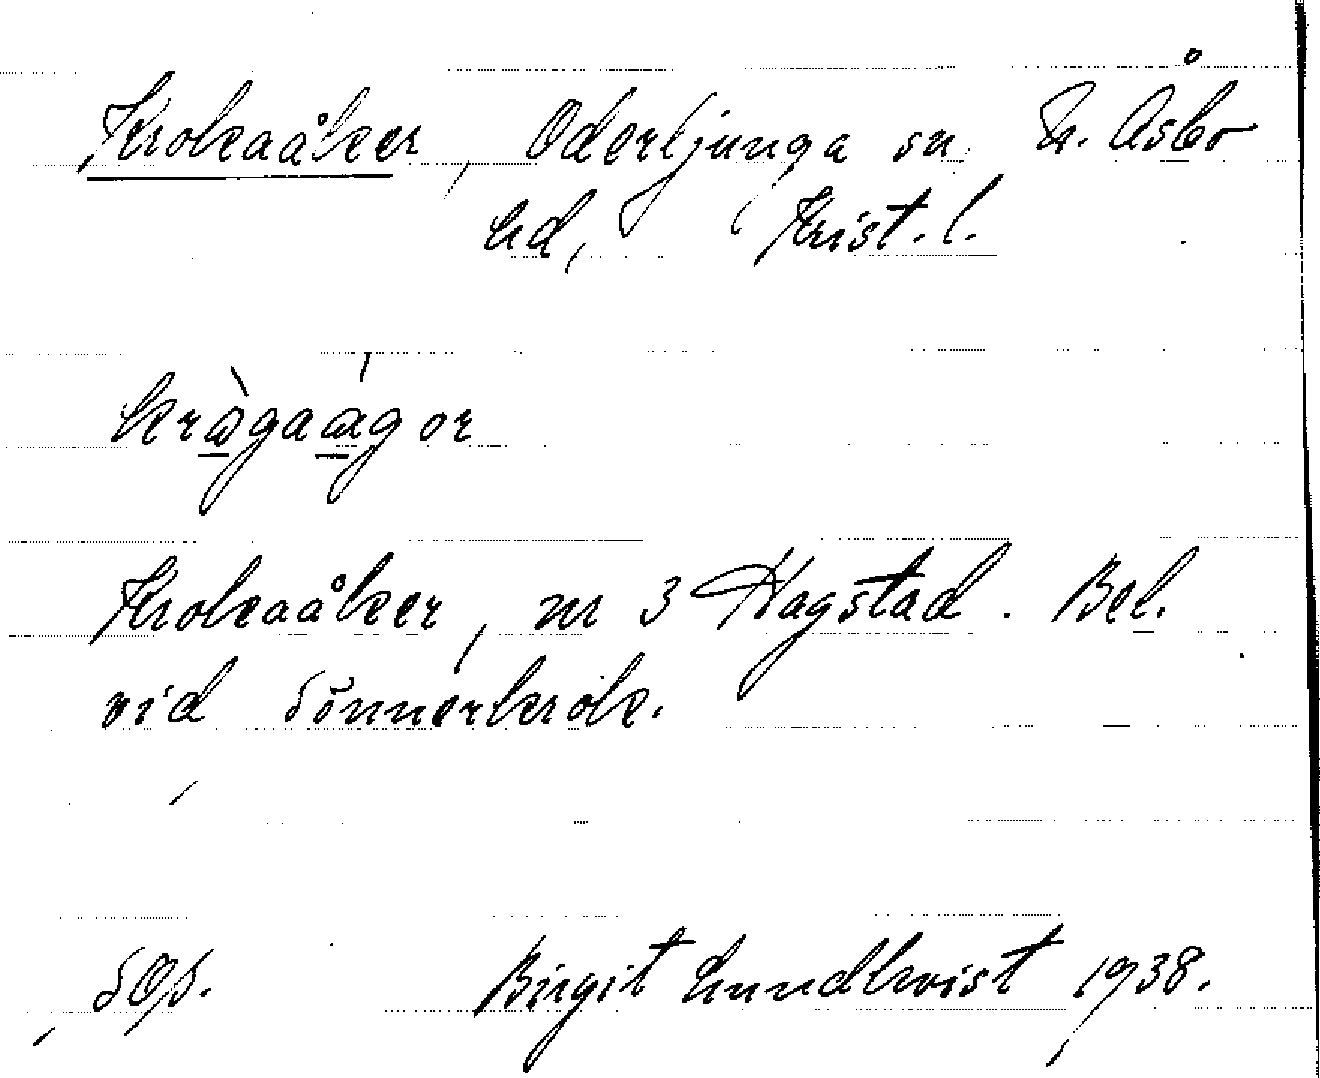 Krokaåker, Oderljunga sn, N. Åsbo
hd, Krist. l.
kràgaágor
Krokaåker, nr 3 Hagstad. Bel.
vid Sönnerkrok.
SOp. Birgit Lundkvist 1938.